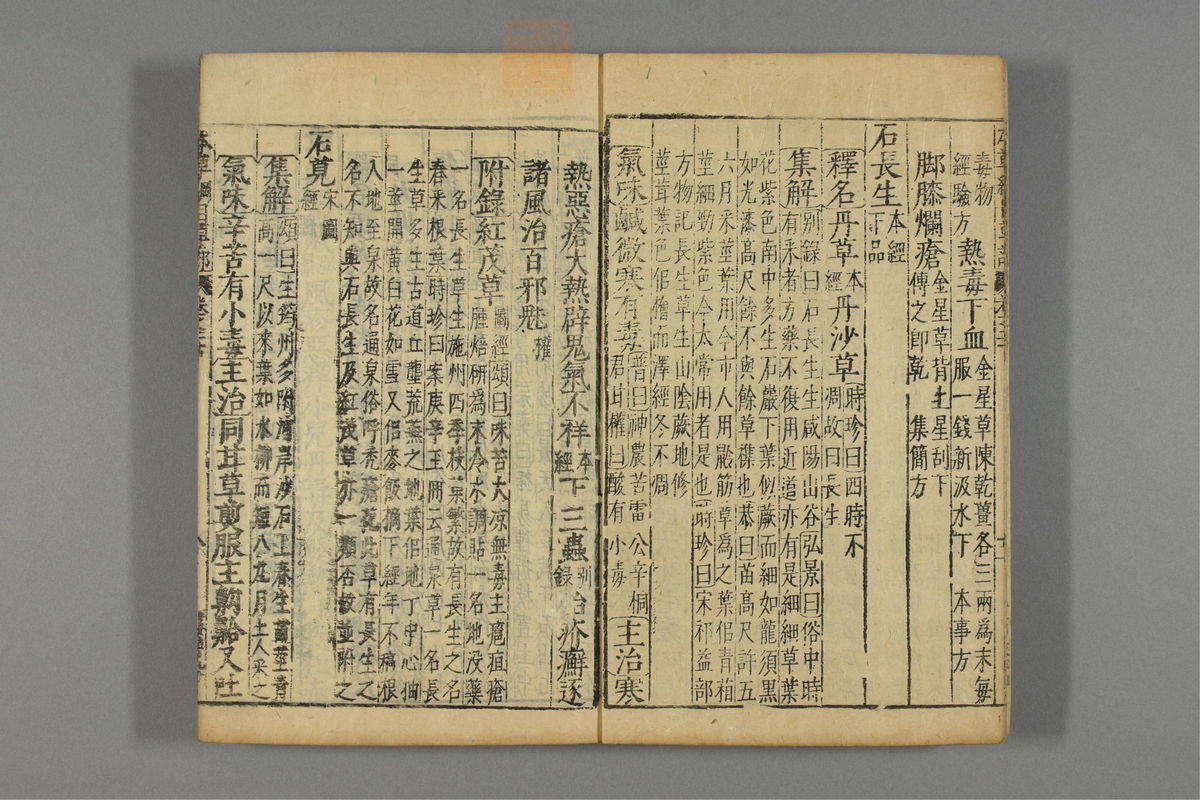 毒物
經驗方熱毒下血金星草陳乾薑各三兩爲末每
服一錢新汲水下 本事方
脚膝爛瘡金星草背上星刮下
傅之卽乾 集簡方
石長生本經
下品
釋名丹草本
經丹沙草時珍曰四時不
凋故曰長生
集解别錄曰石長生生咸陽山谷弘景曰俗中時
有采者方藥不復用近道亦有是細細草葉
花紫色南中多生石巖下葉似蕨而細如龍須黑
如光漆高尺餘不與餘草雜也恭曰苗高尺許五
六月采莖葉用今市人用㱠筋草爲之葉佀青葙
莖細勁紫色今太常用者是也時珍曰宋祁益部
方物記長生草生山陰蕨地修
莖茸葉色佀檜而澤經冬不凋
氣味鹹微寒有毒普曰神農苦雷公辛桐
君甘權曰酸有小毒主治寒
熱惡瘡大熱辟鬼氣不祥本
經下三蟲别
錄治疥癬逐
諸風治百邪鬽權
附錄紅茂草圖經頌曰味苦大凉無毒主癰疽瘡
腫焙研爲末冷水調貼一名地没藥
一名長生草生施州四季枝葉繁故有長生之名
春采根葉時珍曰案庚辛玉冊云通泉草一名長
生草多生古道丘壟荒蕪之地葉佀地丁中心抽
一莖開黄白花如雪又佀麥飯摘下經年不稿根
入地至泉故名通泉俗呼禿瘡花此草有長生之
名不知與石長生及紅茂草亦一類否故並附之
石莧宋圖
經
集解頌曰生筠州多附河岸沙石上春生苗莖青
高一尺以來葉如水柳而短八九月土人采之
氣味辛苦有小毒主治同甘草煎服主齁䶎又吐